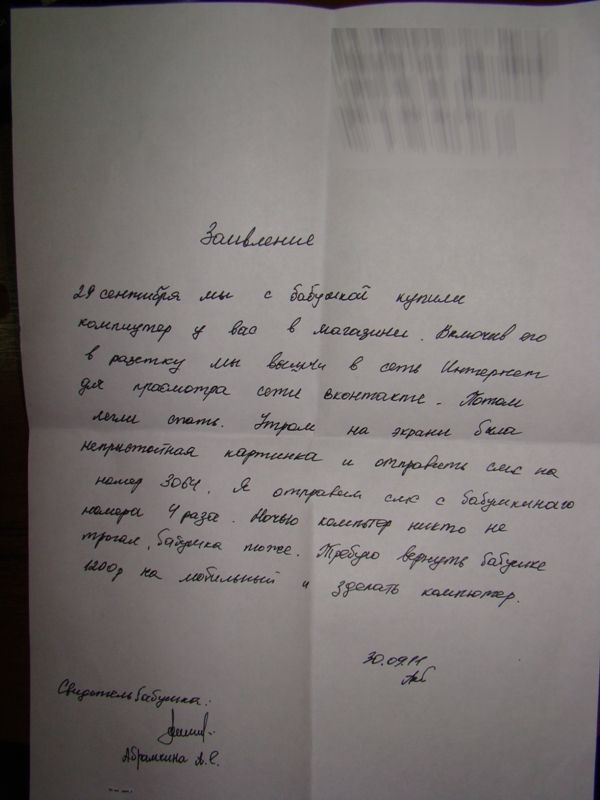 Заивление
29 сентября мы с бабушкой купили
компиутер у вас в магазини. Включив его
в разетку мы вышли в сеть Интернет
для просмотра сети вконтакте. Потом
легли спать. Утром на экрани была
непрыстойная картинка и отправить смс на
номер 3064. Я отправил смс с бабушкинаго
номера 4 раза. Ночью компьтор никто не
трогал, бабушка тоже. Требую вернуть бабушке
1200р на мобильный и зделать компютер.
30.09.11
Свидетель бабушка:
Абрамкина А.С.